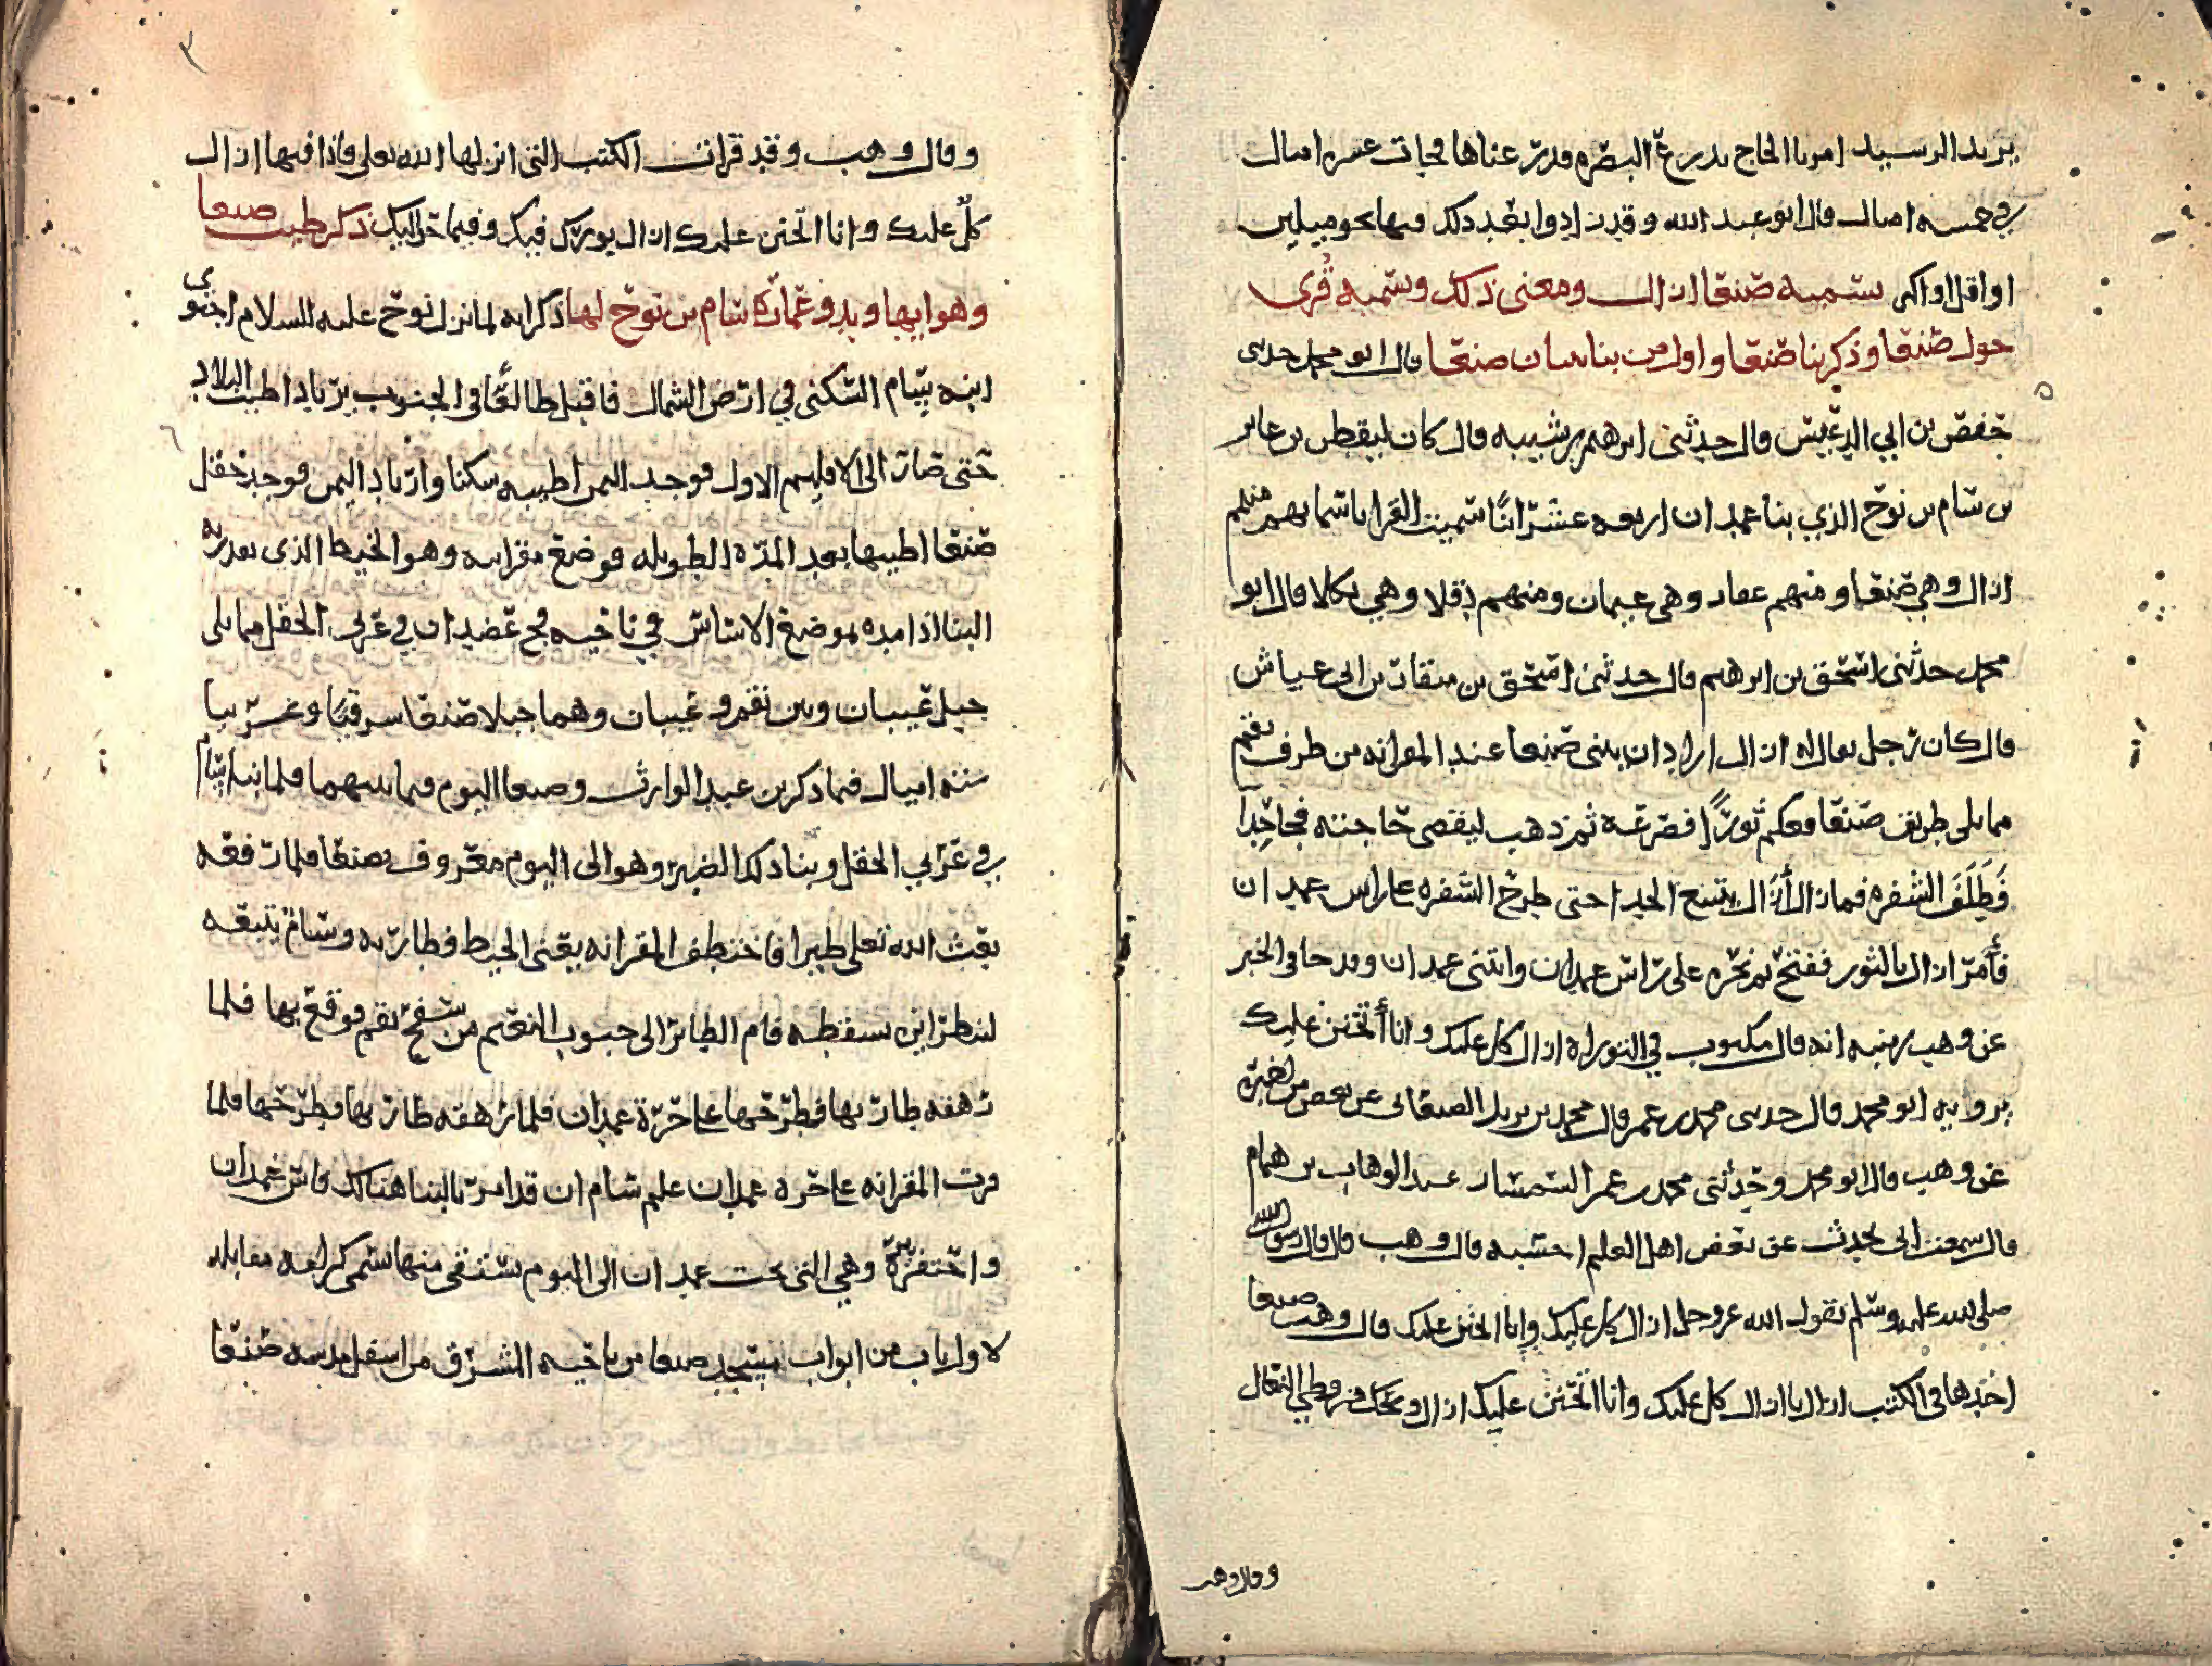 يزيد الرسيد امرنا الحاج بذرع البصره فذرعناها فجات عشره اميال
في خمسه اميال قال ابو عبد الله وقد زادوا بعد ذلك فيها نحو ميلين
او اقل او اكثر تسميه صنعا ازال ومعنى ذلك وتسميه قرى
حول صنعا وذكر بنا صنعا واول من بنا صنعا قال ابو محمد حدثني
حفص بن ابي الدغيس قال حدثني ابرهيم بن شبيبه قال كان ليقطن بن عابر
بن سام بن نوح الذي بنا غمدان اربعه عشر ابنا سميت القرا باسمايهم منهم
ازال وهي صنعا ومنهم عفار وهي عيمان ومنهم دقلا وهي بكلا قال ابو
محمد حدثني اسحق بن ابرهيم قال حدثني اسحق بن منقاد بن ابي عياش
قال كان رجل يقال له ازال اراد ان يبني صنعا عند المقرانه من طرف نقم
مما يلي طريف صنعا فعكم ثورًا فصرعه ثم ذهب ليقضي حاجته فجا حِدَأ
فَطَلَفَ الشفره فما زال أَزَال يتبع الحدا حتى طرح الشفره علي راس غمدان
فأمر ازال بالثور ففتح ثم نحره على راس غمدان وابتنى غمدان وقد جا في الخبر
عن وهب بن منبه انه قال مكتوب في التوراه ازال كل عليك وانا أتحنن عليك
يرويه ابو محمد قال حدثني محمد بن عمر قال محمد بن يزيد الصنعاني عن بعض من اخبره
عن وهب قال ابو محمد وحدثني محمد بن عمر السمسار عبد الوهاب بن همام
قال سمعت ابي يحدث عن بعض اهل العلم احسبه قال وهب قال قال رسول الله
صلى الله عليه وسلم يقول الله عز وجل ازال كل عليك وانا اتحنن عليك قال وهب صنعا
اجدها في الكتب ازال يا ازال كل عليك وانا اتحنن عليك ازال
وقال وهب
٣
وقال وهب وقد قرات الكتب التي انزلها الله تعلى فاذا فيها ازال
كلّ عليك وانا اتحنن عليك ازال بورك فيك وفيما حواليك ذكر طيب صنعا
وهوايها وبدو عمارة سام بن نوح لها ذكر انه لما نزل نوح عليه السلام اجتوى
ابنه سام السكنى في ارض الشمال فاقبل طالعًا في الجنوب يرتاد اطيب البلاد
حتى صار الى الاقليم الاول فوجد اليمن اطيبه سكنا وارتاد اليمن فوجد حقل
صنعا اطيبها بعد المده الطويله فوضع مقرانه وهو الخيط الذي يقدر به
البنا اذا مده بموضع الاساس في ناحيه فج عضدان في غربي الحقل مما يلي
جبل عيبان وبين نقم وعيبان وهما جبلا صنعا سرقيًا وغربيا
سته اميال فيما ذكر بن عبد الوارث وصنعا اليوم فيما بينهما فلما بنا سام
في غربي الحقل وبنا ذلك الضبر وهو الى اليوم معروف بصنعا فلما رفعه
بعث الله تعلى طيرا فاختطف المقرانه يعني الخيط فطار به وسام يتبعه
لينظر اين يسقطه فام الطائر الى جبوب النعيم من سفح نقم فوقع بها فلما
رهقه طار بها فطرحها علي حرة غمدان فلما رهقه طار بها فطرحها فلما
قرت المقرانه علي حره غمدان علم سام ان قد امر بالبنا هنالك فاس غمدان
واحتفر بيره وهي التي تحت غمدان الى اليوم يستقى منها تسمى كرامه مقابله
لاول باب من ابواب مسجد صنعا من ناحيه المشرق من اسفل مدينه صنعا